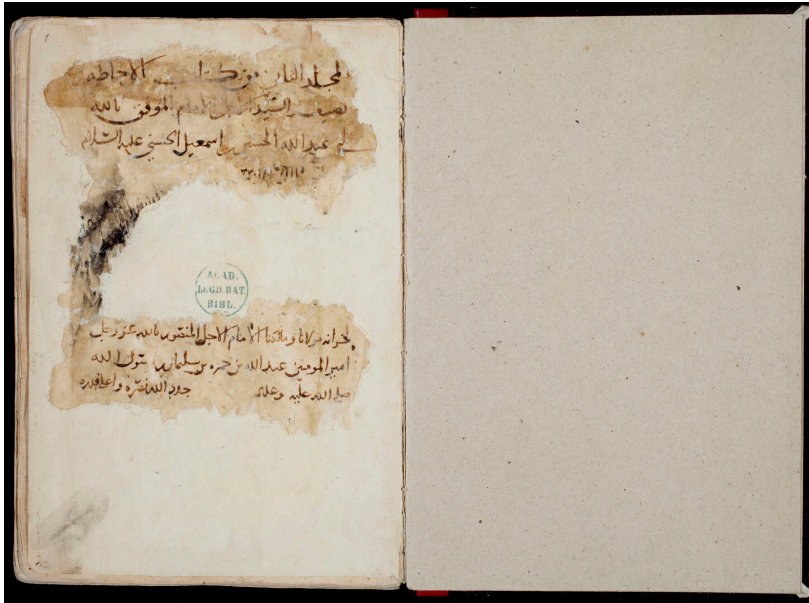 المجلد الثاني من كتاب الاحاطه
تصنيف السيد الاجل الامام الموفق بالله
ابي عبد الله الحسين بن اسمعيل الحسني عليه السلام
ACAD.
LUGD. BAT.
BIBL.
لخزانه مولانا ومالكنا الامام الاجل المنصور بالله عز وجل
امير المومنين عبد الله بن حمزه بن سليمان بن رسول الله
صلى الله عليه وعليهم جدد الله نصره واعلا قدره